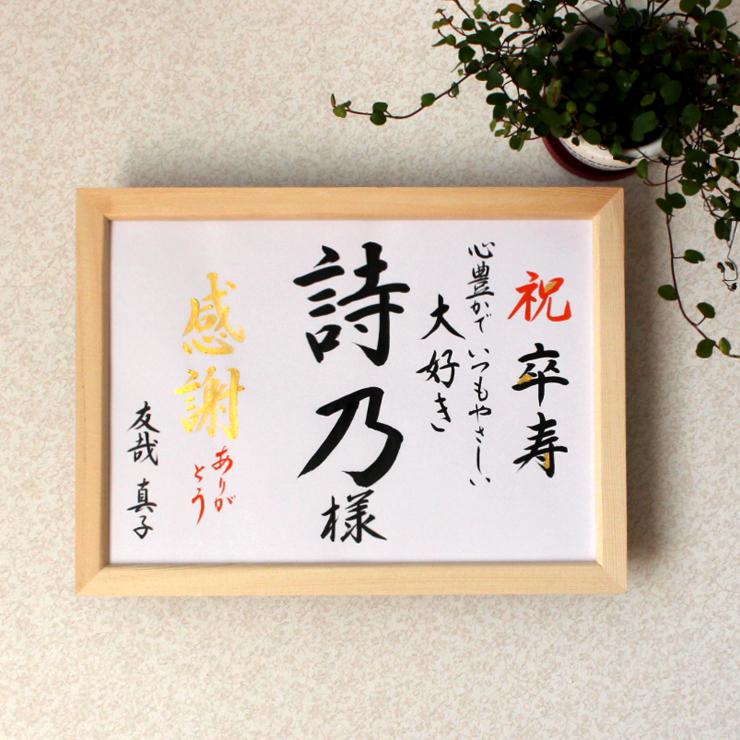 祝 卒寿
心豊かで いつもやさしい
大好き
詩乃様
感謝
ありが
とう
友哉 真子